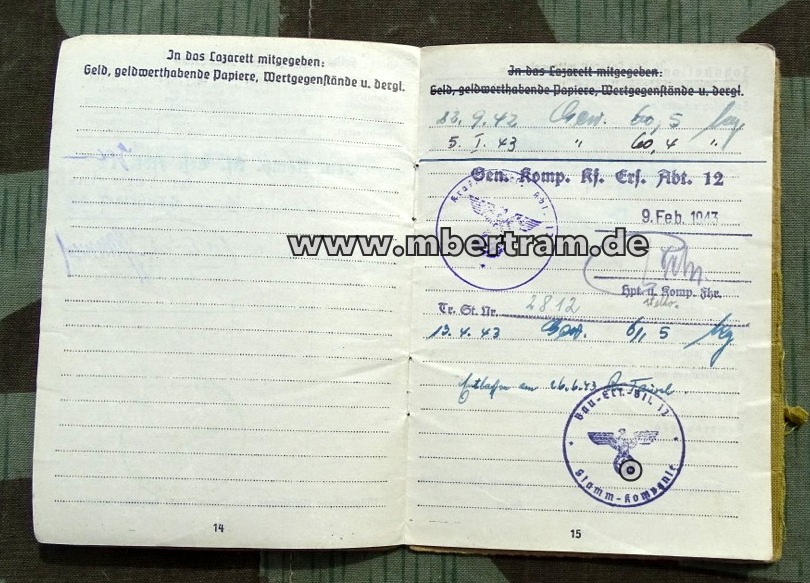 In das Lazarett mitgegeben:
Geld, geldwerthabende Papiere, Wertgegenstände u. dergl.
14
In das Lazarett mitgegeben:
Geld, geldwerthabende Papiere, Wertgegenstände u. dergl.
22.9.42 Gew. 60,5
5. I. 43 " 60,4 "
Gen. Komp. Kf. Ers. Abt. 12
9. Feb. 1943
www.mbertram.de
Hpt. u. Komp. Fhr.
Tr. St. Nr. 2812
13.4.43 Gew. 61,5
Entlassen am 26.6.43
Bau-Ers.-Btl. 17
Stamm-Kompanie
15